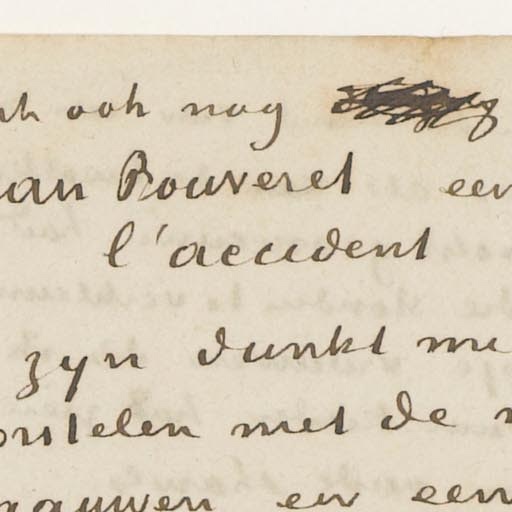 ook nog
Bouveret een
l'accident
zyn dunkt me
orstelen met de
aauwen en een